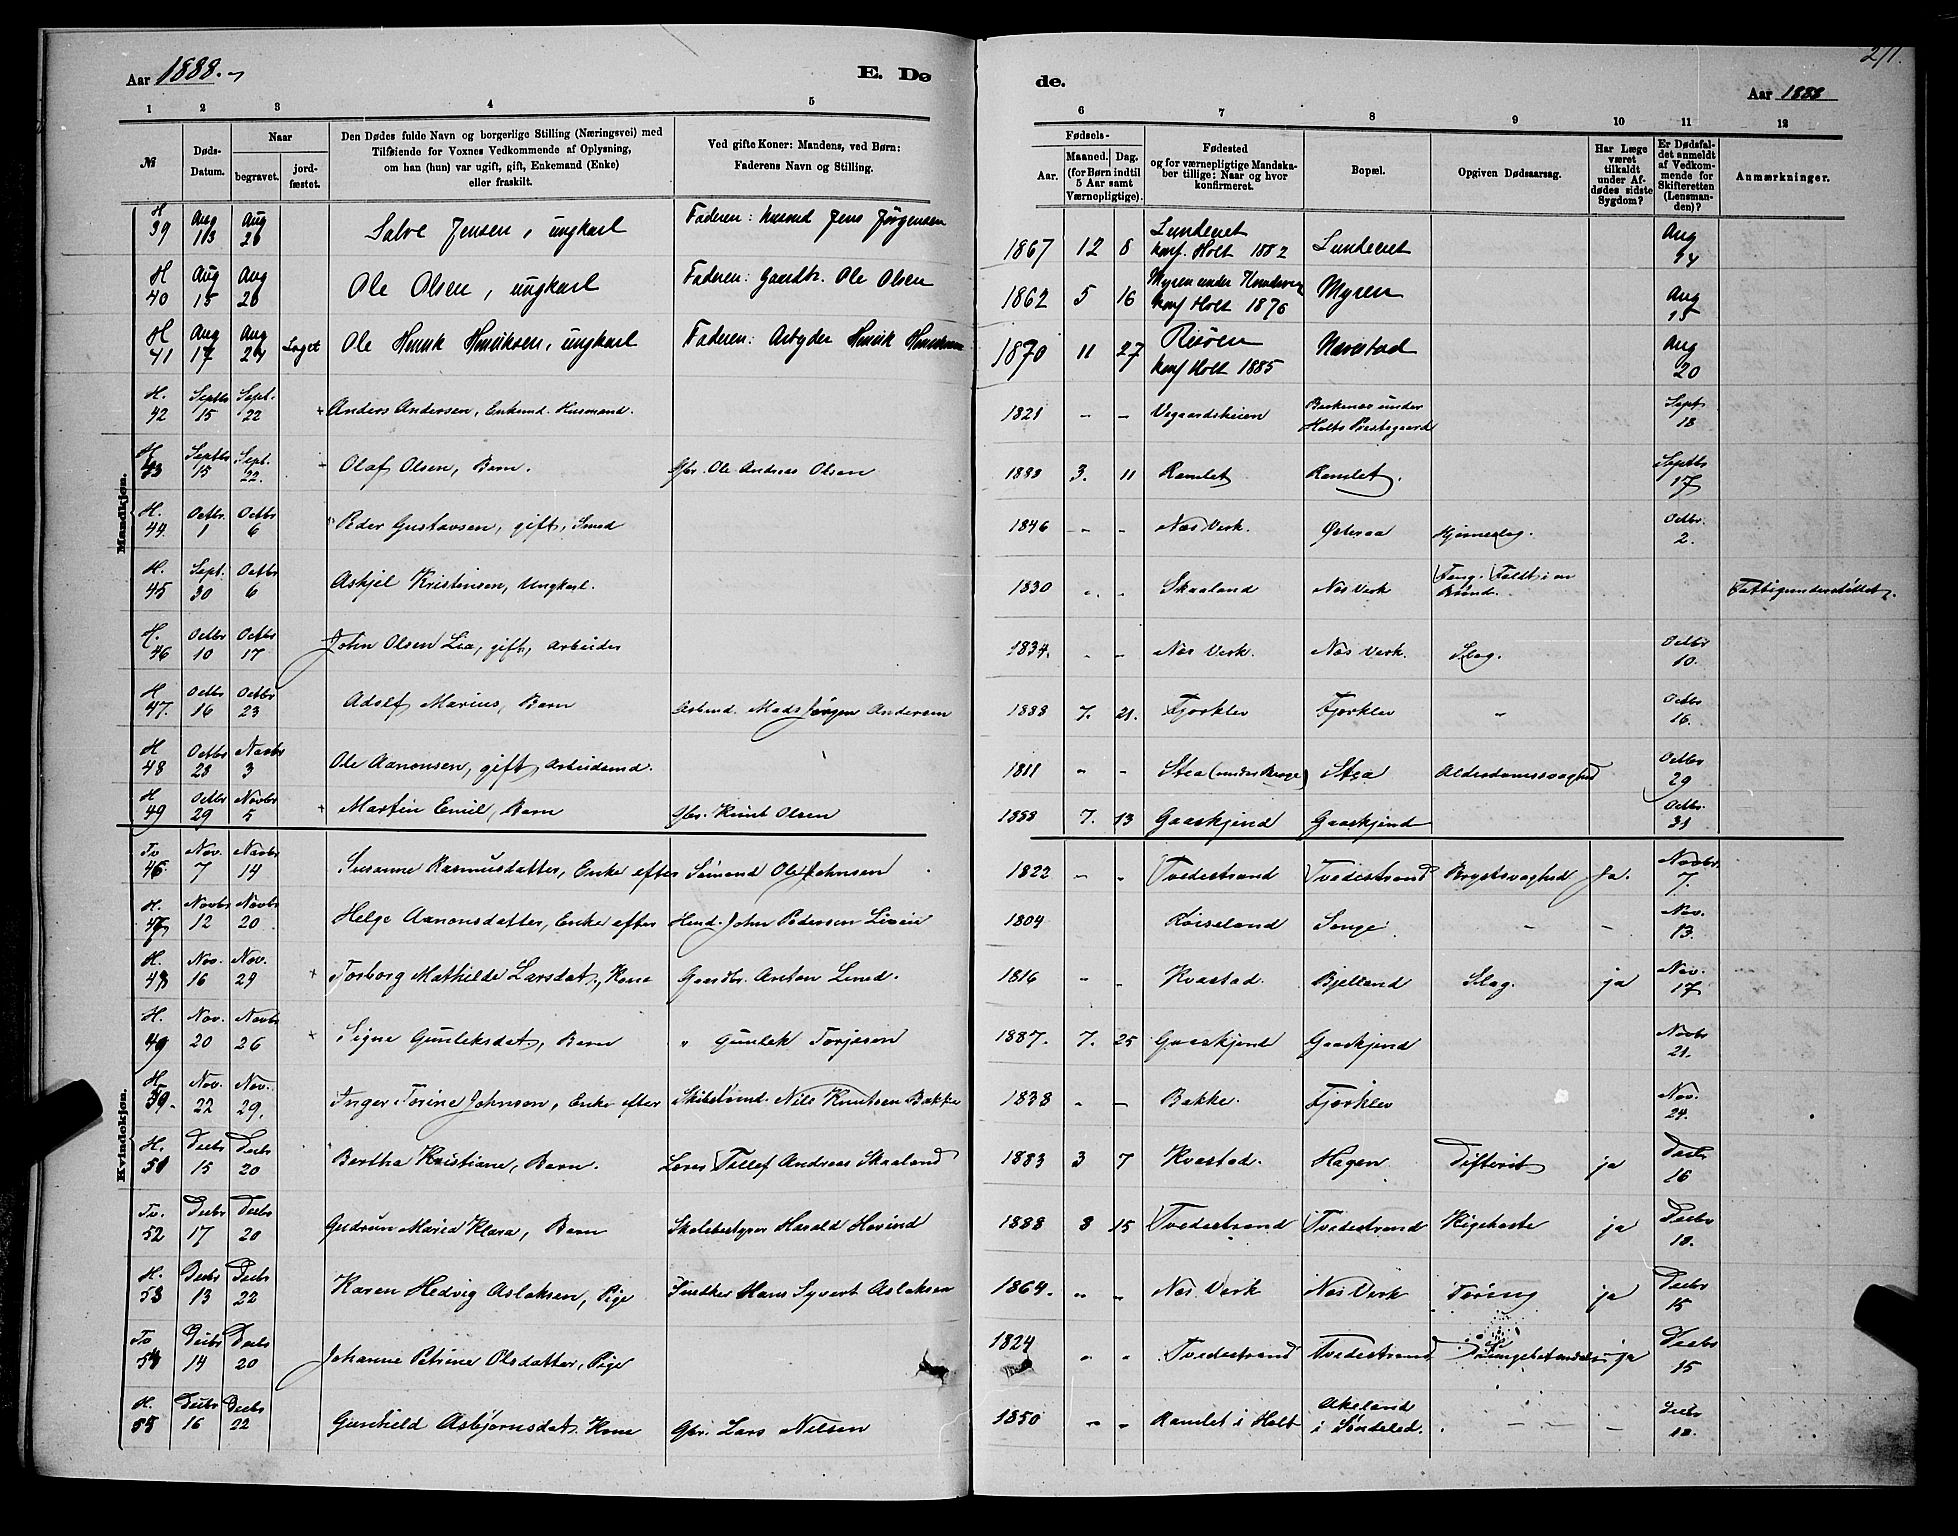 Aar 1888.
E. Dø
de.
271.
Aar 1888
1 2 3 4 5 6 7 8 9 10 11 12
№ Døds-Datum. Naar begravet. jordfæstet. Den Dødes fulde Navn og borgerlige Stilling (Næringsvei) med Tilføiende for Voxnes Vedkommende af Oplysning, om han (hun) var ugift, gift, Enkemand (Enke) eller fraskilt. Ved gifte Koner: Mandens, ved Børn: Faderens Navn og Stilling. Fødsels- Aar. Maaned. Dag. (for Børn indtil 5 Aar samt Værnepligtige). Fødested og for værnepligtige Mandskaber tillige: Naar og hvor konfirmeret. Bopæl. Opgiven Dødsaarsag. Har Læge været tilkaldt under Afdødes sidste Sygdom? Er Dødsfaldet anmeldt af Vedkommende for Skifteretten (Lensmanden)? Anmærkninger.
Mandkjøn.
H 39 Aug 13 Aug 26 Salve Jensen, ungkarl Faderen: Jens Jørgensen 1867 12 8 Lundevet konf. Holt 1882 Lundevet Aug 14
H 40 Aug 15 Aug 26 Ole Olsen, ungkarl Faderen: Gaardbr. Ole Olsen 1862 5 16 Myren under konf Holt 1876 Myren Aug 15
H 41 Aug 17 Aug 24 Ole Henrik Henriksen, ungkarl Faderen: Arbyder Henrik Henriksen 1870 11 27 Risøen konf Holt 1885 Navestad Aug 20
H. 42 Septbr 15 Sept. 22 Anders Andersen, Enkemd. Husmand. 1821 - - Vegaardsheien under Holts Præstegaard Sept 18
H 43 Septbr 15 Sept. 22. Olaf Olsen, Barn. Gbr. Ole Andreas Olsen 1888 3. 11 Ramlet Ramlet. Septbr 17
H. 44. Octbr. 1 Octbr 6 Peder Gustavsen, gift, Smed 1846 - - Næs Verk Østeraa Hjerneslag. Octbr. 2.
H. 45 Sept. 30 Octbr 6 Askjel Kristensen, Ungkarl. 1830 " - Skaaland Næs Verk Faldt i en Brønd. Fattigunderstøttet.
H. 46 Octbr 10 Octbr 17 John Olsen Lia, gift, Arbeider 1834. - - Næs Verk. Næs Verk. Slag. Octbr 10.
H 47. Octbr 16 Octbr 23 Adolf Marius, Barn Arbmd. Mads Jørgen Andersen 1888 7. 21. Fjorklev Fjorklev " Octbr 16.
H 48 Octbr 28 Novbr 3 Ole Aanonsen, gift, Arbeidsmd. 1811 " - Stea (under Berge) Stea Alderdomssvaghed Octbr 29
H 49 Octbr 29 Novbr 5 Martin Emil, Barn Gbr. Knut Olsen 1888 7. 13 Gaaskjend Gaaskjend Octbr. 31
Kvindekjøn.
Tv 46. Nov. 7 Novbr 14 Susanne Rasmusdatter, Enke efter Sømand Ole Johnsen 1822 - " Tvedestrand Tvedestrand Brystsvaghed Ja. Novbr 7.
H. 47 Novbr 12 Novbr 20 Helge Aanonsdatter, Enke efter John Pedersen 1804 Røiseland Songe - - Nov. 13.
H. 48 Nov. 16 Nov. 24 Torborg Mathilde Larsdat., Kone Gaardbr. Anton 1816 " - Kvastad. Bjelland Slag. ja Nov. 17
H. 49 Nov. 20 Novbr 26 Signe Gunleksdat, Barn " Gunlek Torjesen 1887. 7. 25 Gaaskjend Gaaskjend Novbr 21.
H. 50. Nov. 22 Nov. 29. Inger Torine Johnsen, Enke efter Skibstømd. Nils Knutsen Bakke 1838 " - Bakke. Fjorklev Nov. 24.
H. 51 Decbr 15 Decbr 20 Bertha Kristiane, Barn. Lærer Tellef Andreas Skaaland 1883 3 7 Kvastad. Hagen Difterit ja Decbr 16
Tv. 52 Decbr 17 Decbr 20 Gudrun Maria Klara, Barn Skolebestyrer Harald Hovind 1888 8 15 Tvedestrand Tvedestrand Kighoste ja Decbr 18.
H. 53 Decbr 13 Decbr 22 Karen Hedvig Aslaksen, Pige Snedker Hans Syvert Aslaksen 1864. " " Næs Verk Næs Verk Tæring ja Decbr 15
Tv 54 Decbr 14 Decbr 20 Johanne Petrine Olsdatter, Pige 1824 " " Tvedestrand Tvedestrand ja Decbr 15
H. 55 Decbr 16 Decbr 22 Gunhild Asbjørnsdat. Kone Gbr. Lars Nilsen 1850 " " Ramlet i Holt Akeland i Søndeled. - - Decbr 18.